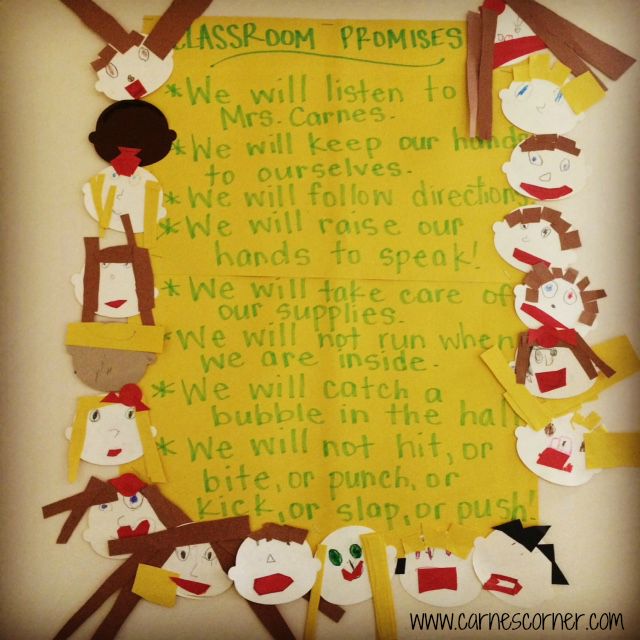 CLASSROOM PROMISES
* We will listen to
Mrs. Carnes.
* We will keep our hands
to ourselves.
* We will follow directions.
* We will raise our
hands to speak!
* We will take care of
our supplies.
* We will not run when
we are inside.
* We will catch a
bubble in the hall
* We will not hit, or
bite, or punch, or
kick, or slap, or push!
www.carnescorner.com